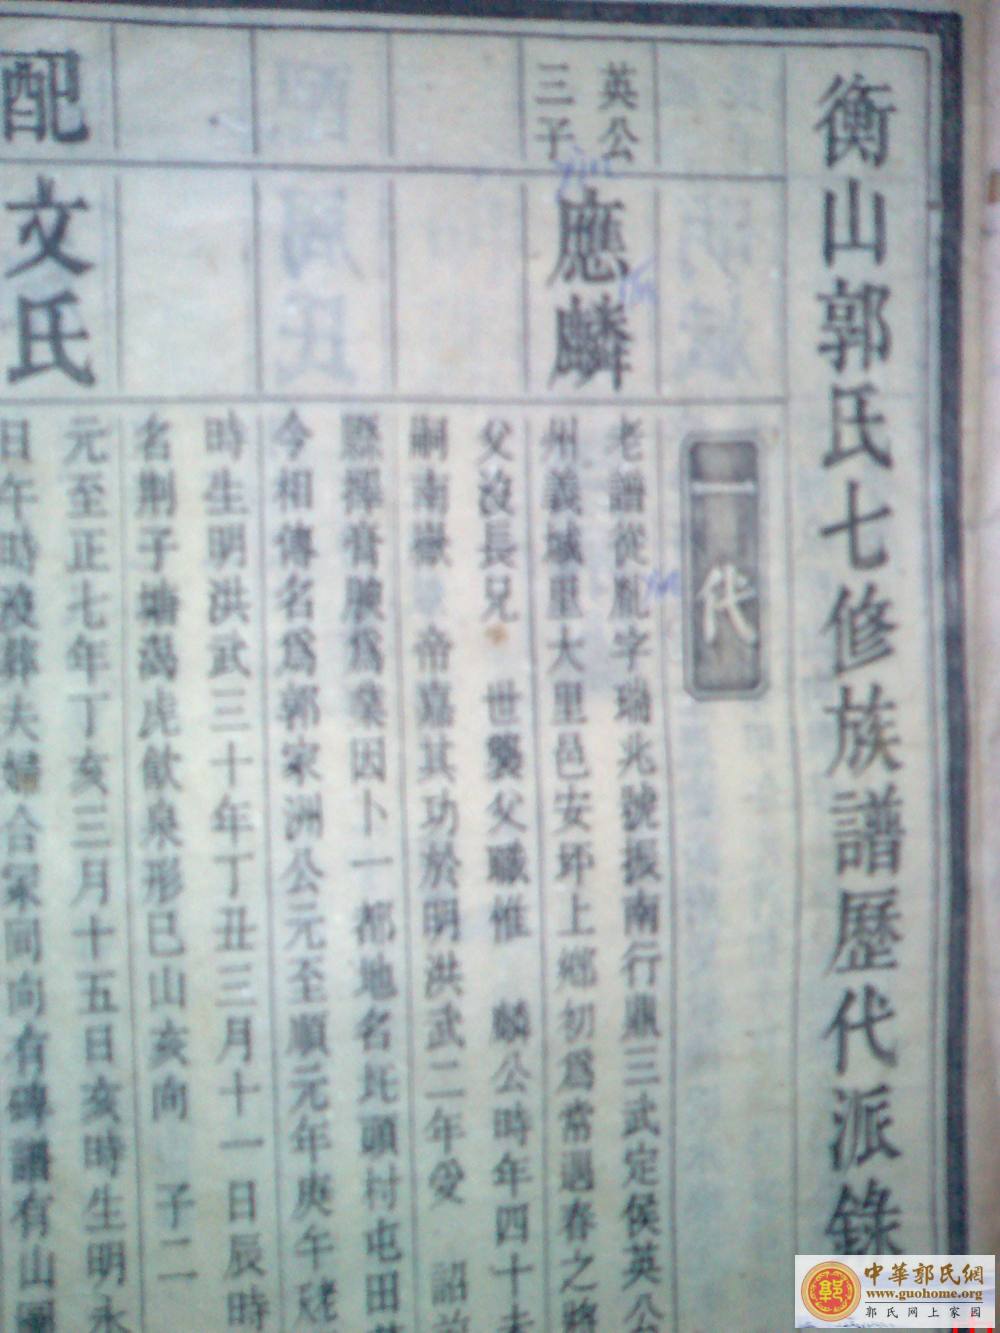 衡山郭氏七修族譜歷代派錄
一代
英公
三子
應麟
老譜從胤字瑞兆號振南行鼎三武定侯英公
州義城里大里邑安抔上鄉初為常遇春之將
父沒長兄 世襲父職惟 麟公時年四十
嗣南嶽 帝嘉其功於明洪武二年爰 詔
縣擇膏腴為業因卜一都地名坵頭村屯田
今相傳名為郭家洲公元至順元年庚午
時生明洪武三十年丁丑三月十一日辰時
名荆子塘渴虎飲泉形巳山亥向 子二
配
文氏
元至正七年丁亥三月十五日亥時生明永
日午時歿葬夫婦合冢同向有碑譜有山圖
中華郭氏網
www.guohome.org
郭氏网上家园